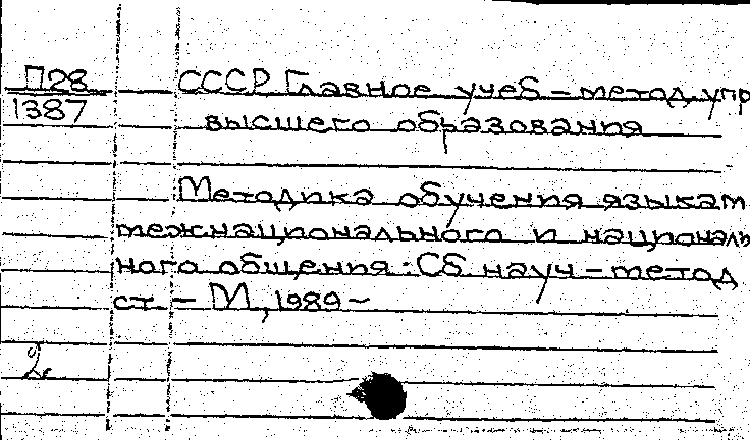 П28 СССР Главное учеб-метод упр
1387 высшего образования
Методика обучения языкам
межнационального и националь
ного общения: Сб науч-метод
ст. - М, 1989-
2.